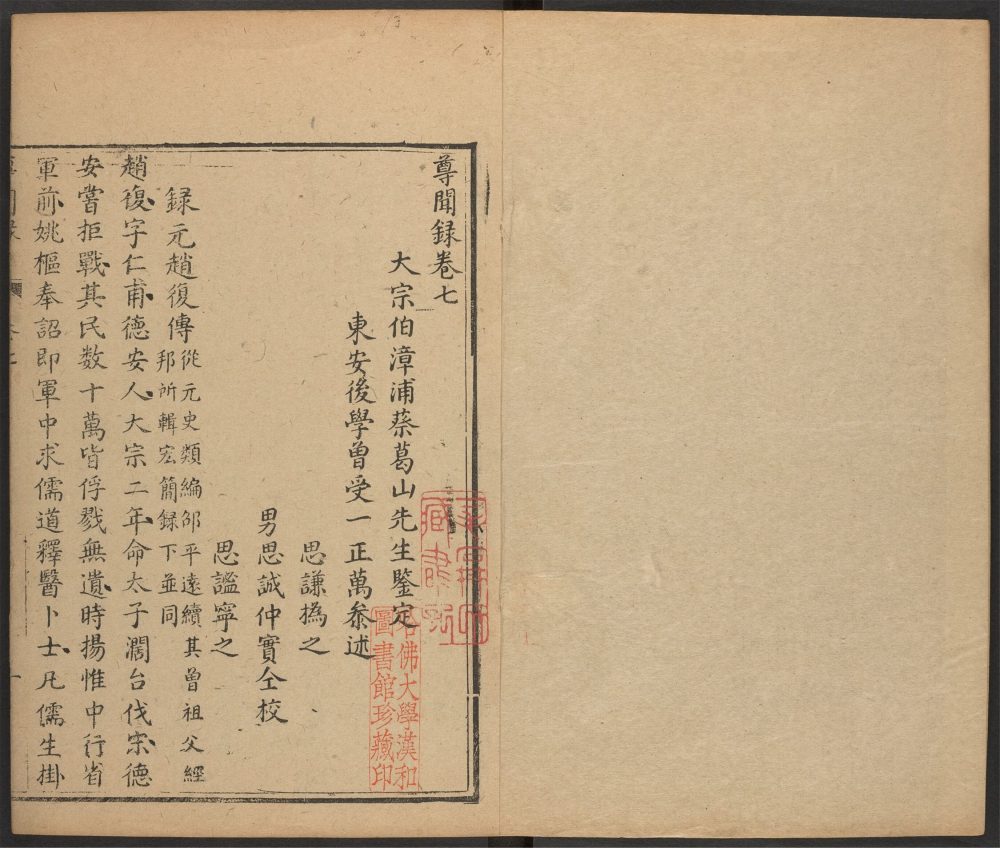 尊聞録卷七
大宗伯漳浦蔡葛山先生鑒定
東安後學曾受一正萬叅述
思謙撝之
男思誠仲實仝校
思謐寧之
録元趙復傳從元史類編邵平遠續其曾祖父經
邦所輯宏簡録下並同
趙復字仁甫德安人大宗二年命太子濶台伐宋德
安嘗拒戰其民数十萬皆俘戮無遺時揚惟中行省
軍前姚樞奉詔即軍中求儒道釋醫卜士凡儒生掛
哈佛大學漢和
圖書館珍藏印